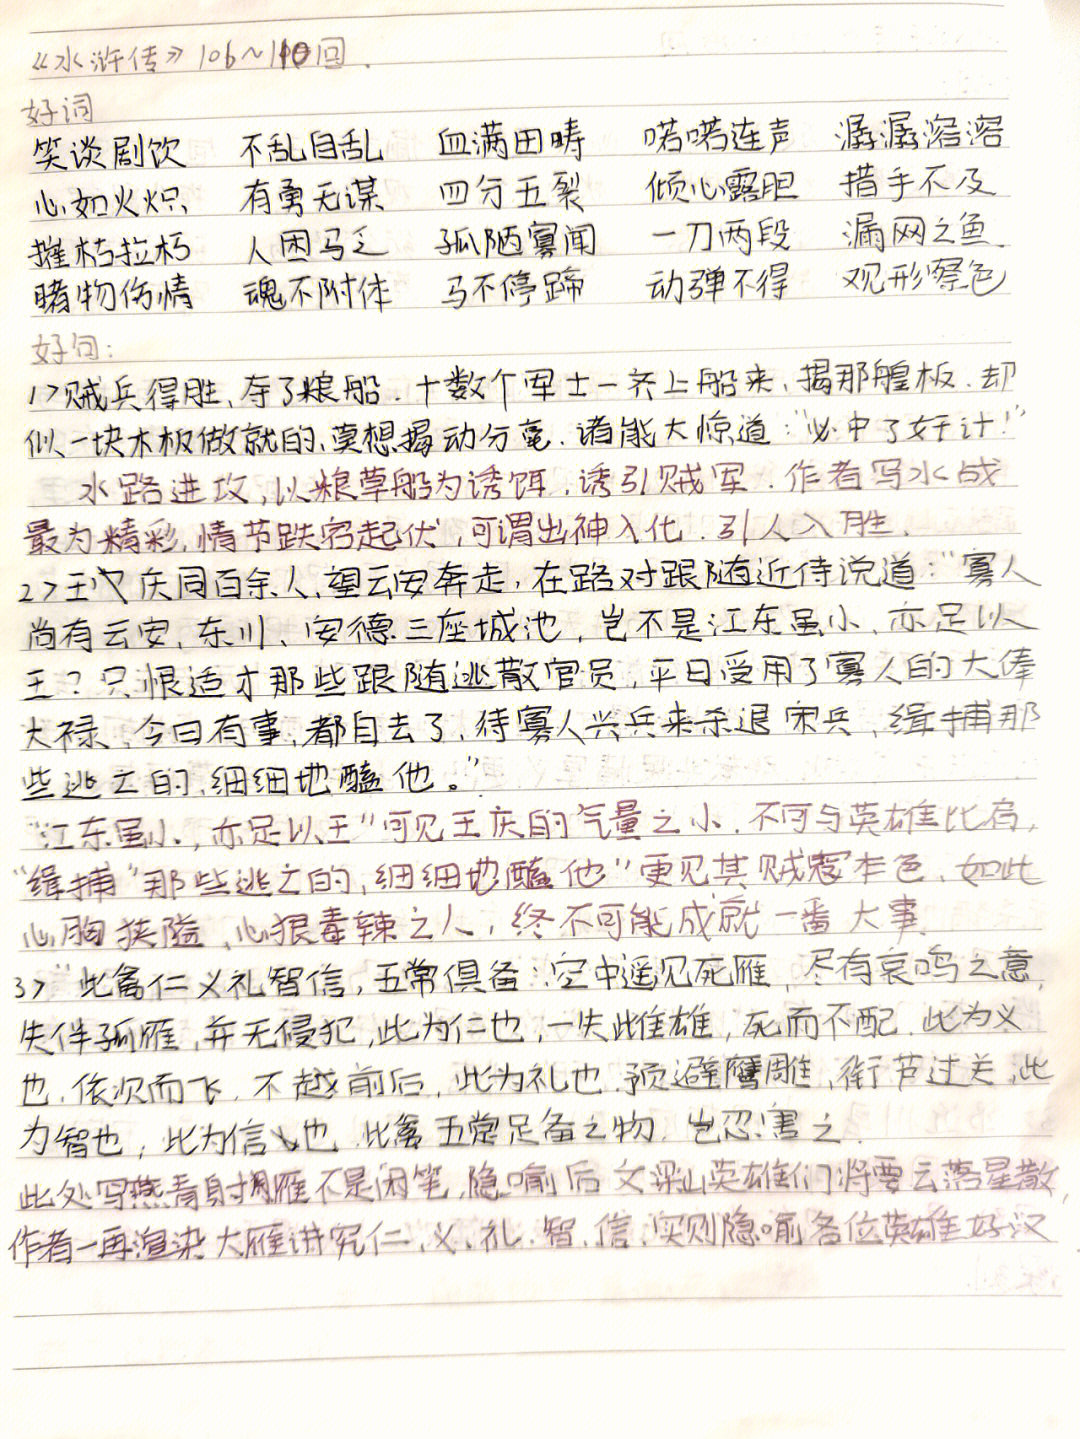 《水浒传》106~110回.
好词
笑谈剧饮 不乱自乱 血满田畴 喏喏连声 潺潺溶溶
心如火炽 有勇无谋 四分五裂 倾心露胆 措手不及
摧枯拉朽 人困马乏 孤陋寡闻 一刀两段 漏网之鱼
睹物伤情 魂不附体 马不停蹄 动弹不得 观形察色
好句:
1>贼兵得胜,夺了粮船.十数个军士一齐上船来,揭那艎板.却
似一块木板做就的,莫想揭动分毫.诸能大惊道:"必中了奸计!"
水路进攻,以粮草船为诱饵,诱引贼军.作者写水战
最为精彩,情节跌宕起伏,可谓出神入化.引人入胜.
2>王庆同百余人,望云安奔走,在路对跟随近侍说道:"寡人
尚有云安,东川、安德三座城池,岂不是江东虽小,亦足以
王?只恨适才那些跟随逃散官员,平日受用了寡人的大俸
大禄,今日有事,都自去了,待寡人兴兵来杀退宋兵,缉捕那
些逃亡的,细细地醢他。"
"江东虽小,亦足以王"可见王庆的气量之小.不可与英雄比肩,
"缉捕"那些逃亡的,细细地醢他"更见其贼寇本色,如此
心胸狭隘,心狠毒辣之人,终不可能成就一番大事
3>"此禽仁义礼智信,五常俱备:空中遥见死雁,尽有哀鸣之意,
失伴孤雁,并无侵犯,此为仁也,一失雌雄,死而不配,此为义
也,依次而飞,不越前后,此为礼也,预避鹰雕,衔芦过关,此
为智也,此为信也.此禽五常足备之物,岂忍害之.
此处写燕青射猎雁不是闲笔,隐喻后文梁山英雄们将要云落星散,
作者一再渲染大雁讲究仁、义、礼、智、信,实则隐喻各位英雄好汉